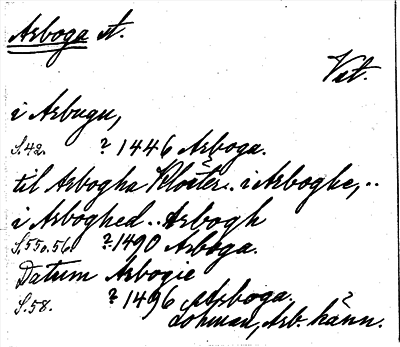 Arboga st.
Vst.
i Arbugu,
S.42. ? 1446 Arboga.
til Arbogha Kloster.. i Arboghe,..
i Arboghed.. Arbogh
S.55o.56. ? 1490 Arboga.
Datum Arbogie
S.58. ? 1496 Arboga.
Lohman, Arb. känn.